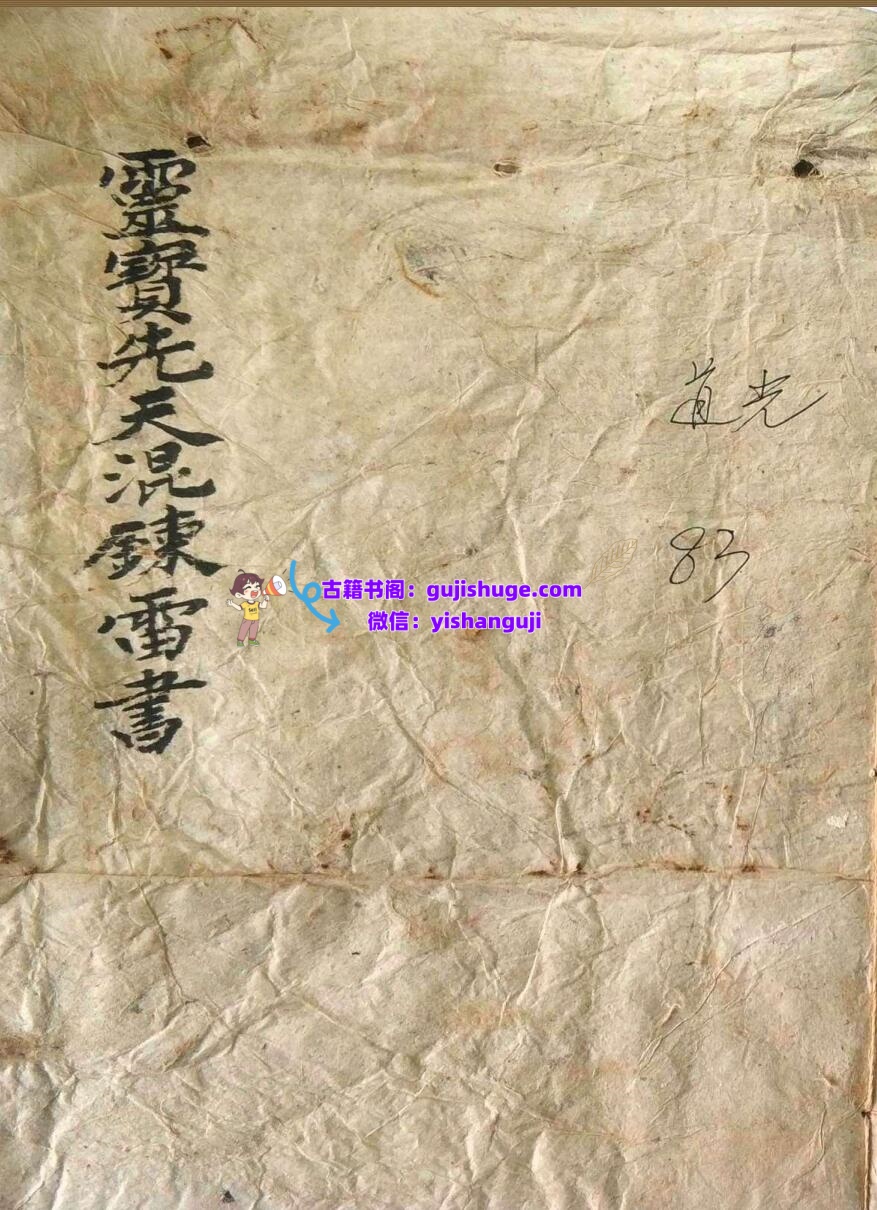 靈寶先天混鍊雷書
道光
83
古籍书阁：gujishuge.com
微信：yishanguji